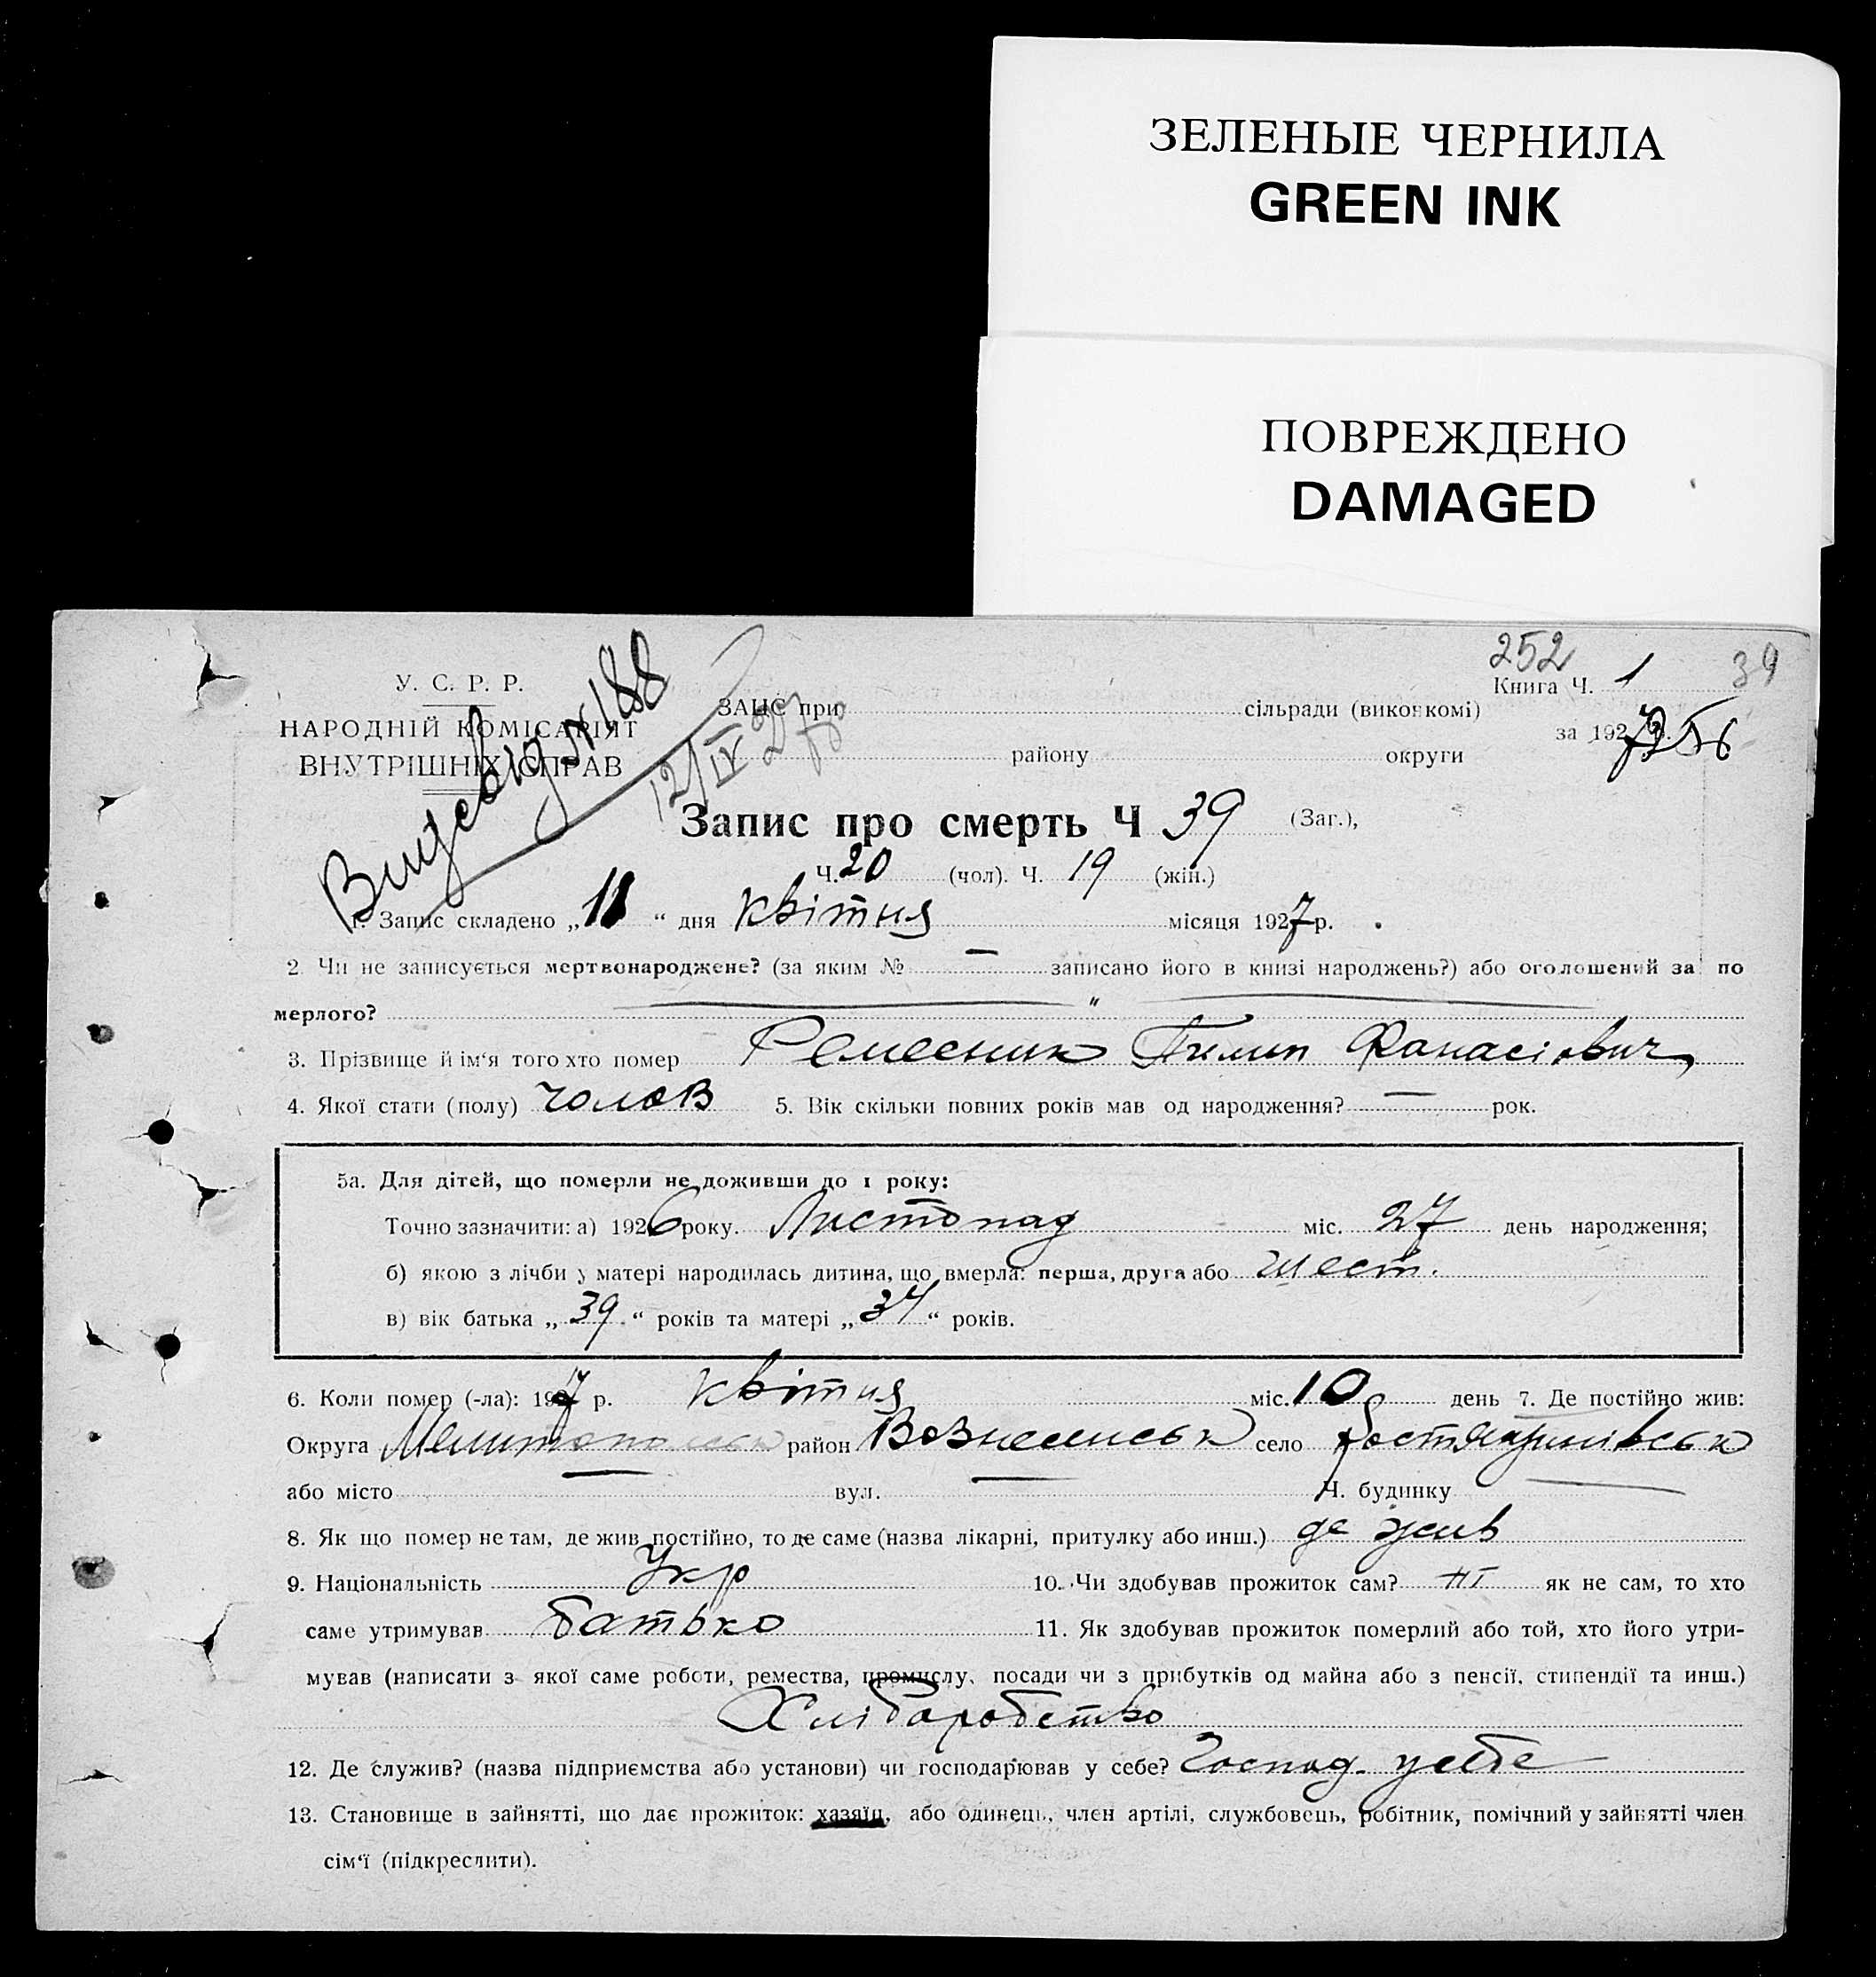 ЗЕЛЕНЫЕ ЧЕРНИЛА
GREEN INK
ПОВРЕЖДЕНО
DAMAGED
252
39
У. С. Р. Р.
НАРОДНІЙ КОМІСАРІЯТ
ВНУТРІШНІХ СПРАВ
188
12/IV 27
Книга Ч. 1
ЗАЦС при сільради (виконкомі)
за 1927 р.
району округи
Запис про смерть Ч 39 (Заг.),
Ч. 20 (чол). Ч. 19 (жін.)
1. Запис складено „11“ дня квітня місяця 1927 р.
2. Чи не записується мертвонароджене? (за яким № — записано його в книзі народжень?) або оголошений за по
мерлого? "
3. Прізвище й ім‘я того хто помер Ремесник Пилип Фанасіович
4. Якої стати (полу) чолов 5. Вік скільки повних років мав од народження? — рок.
5а. Для дітей, що померли не доживши до 1 року:
Точно зазначити: а) 1926 року. Листопад міс. 27 день народження;
б) якою з лічби у матері народилась дитина, що вмерла: перша, друга або шест.
в) вік батька „39“ років та матері „37“ років.
6. Коли помер (-ла): 1927 р. квітня міс. 10 день 7. Де постійно жив:
Округа Мелитопольськ район Вознесенськ село
або місто — вул. — Ч. будинку —
8. Як що помер не там, де жив постійно, то де саме (назва лікарні, притулку або инш.) де жив
9. Національність Укр 10. Чи здобував прожиток сам? ні як не сам, то хто
саме утримував батько 11. Як здобував прожиток померлий або той, хто його утри-
мував (написати з якої саме роботи, ремества, промислу, посади чи з прибутків од майна або з пенсії, стипендії та инш.)
Хліборобство
12. Де служив? (назва підприємства або установи) чи господарював у себе? Господ. у себе
13. Становище в зайнятті, що дає прожиток: хазяїн, або одинець, член артілі, службовець, робітник, помічний у зайнятті член
сім‘ї (підкреслити).